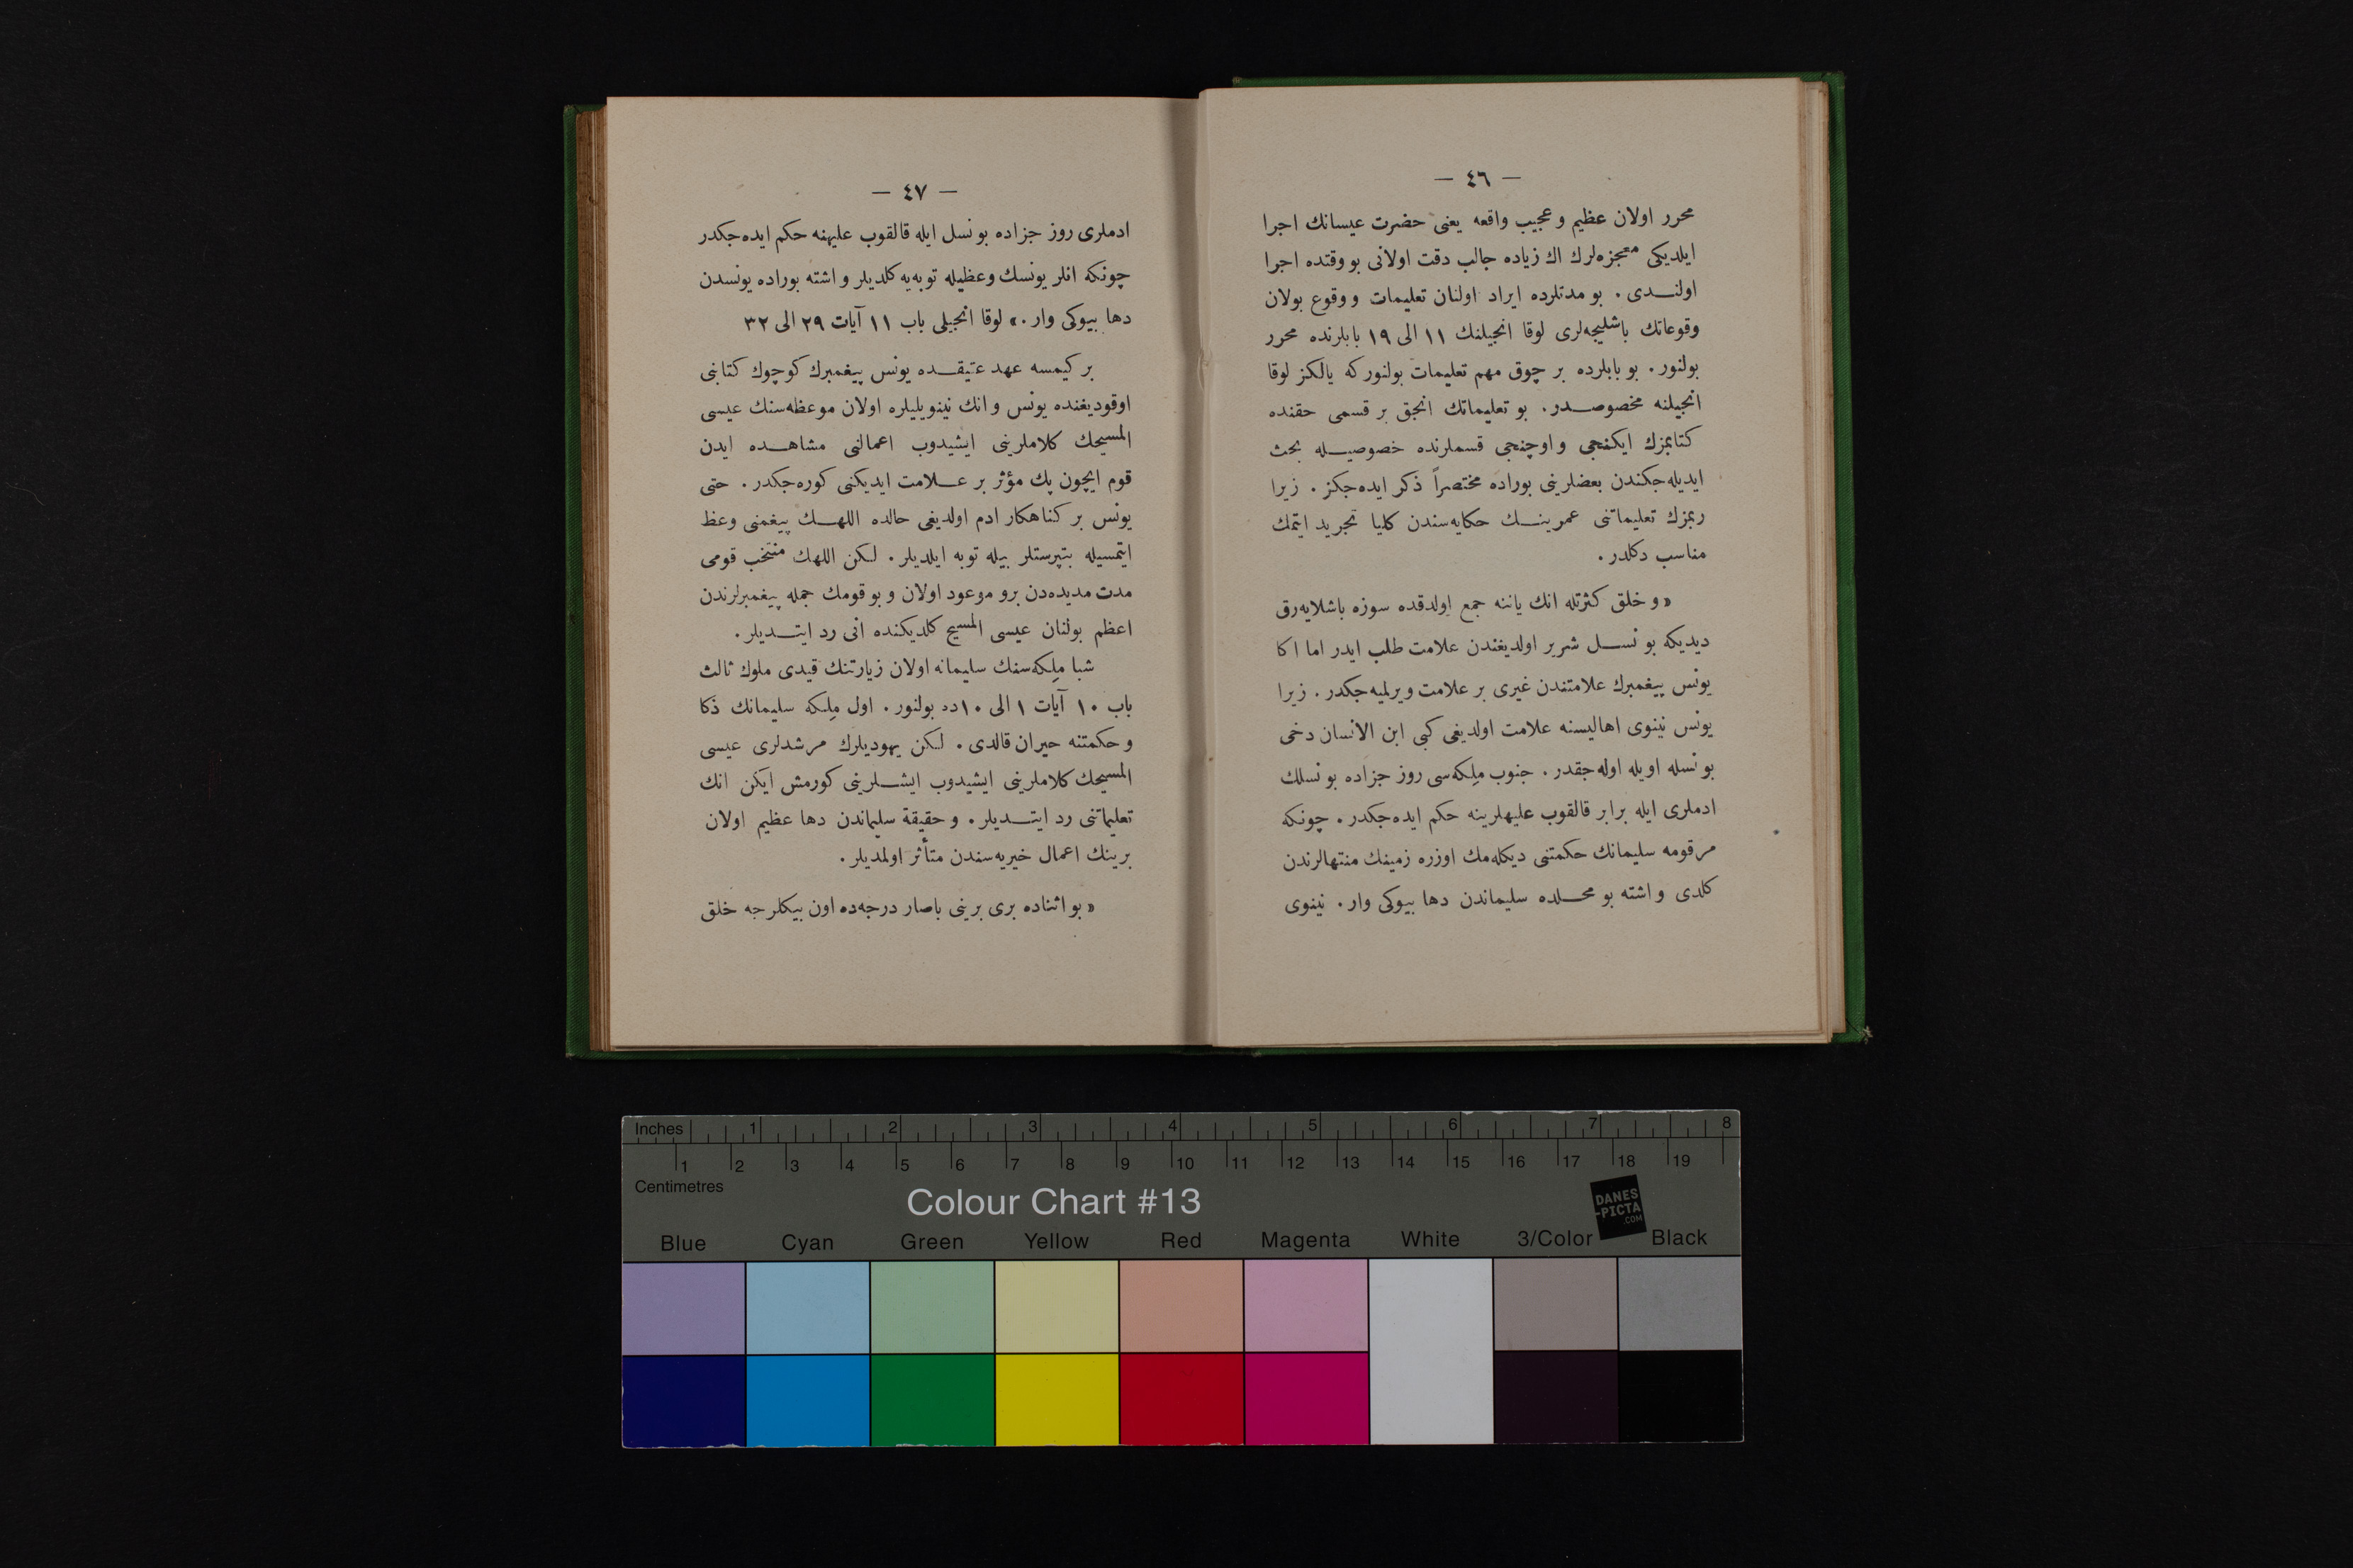 — ٤٦ —
محرر اولان عظیم و عجیب واقعه یعنی حضرت عیسانك اجرا
ایلدیكی معجزه‌لرك اك زیاده جالب دقت اولانی بو وقتده اجرا
اولنـدی . بو مدتلرده ایراد اولنان تعلیمات و وقوع بولان
وقوعاتك باشلیجه‌لری لوقا انجیلنك ١١ الی ١٩ بابلرنده محرر
بولنور . بو بابلرده بر چوق مهم تعلیمات بولنور كه یالكز لوقا
انجیلنه مخصوصـدر . بو تعلیماتك انجق بر قسمی حقنده
كتابمزك ایكنجی و اوچنجی قسملرنده خصوصیـله بحث
ایدیله‌جكندن بعضلرینی بوراده مختصراً ذكر ایده‌جكز . زیرا
ربمزك تعلیماتنی عمرینـك حكایه‌سندن كلیا تجرید ایتمك
مناسب دكلدر .
« و خلق كثرتله انك یاننه جمع اولدقده سوزه باشلایه‌رق
دیدیكه بو نسـل شریر اولدیغندن علامت طلب ایدر اما اكا
یونس پیغمبرك علامتندن غیری بر علامت ویرلمیه‌جكدر . زیرا
یونس نینوی اهالیسنه علامت اولدیغی كبی ابن الانسان دخی
بو نسله اویله اوله‌جقدر . جنوب مِلكه‌سی روز جزاده بو نسلك
ادملری ایله برابر قالقوب علیهلرینه حكم ایده‌جكدر . چونكه
مرقومه سلیمانك حكمتنی دیكله‌مك اوزره زمینك منتهالرندن
كلدی و اشته بو محـلده سلیماندن دها بیوكی وار . نینوی
— ٤٧ —
ادملری روز جزاده بو نسل ایله قالقوب علیهنه حكم ایده‌جكدر
چونكه انلر یونسك وعظیله توبه‌یه كلدیلر و اشته بوراده یونسدن
دها بیوكی وار .» لوقا انجیلی باب ١١ آیات ٢٩ الی ٣٢
بر كیمسه عهد عتیقـده یونس پیغمبرك كوچوك كتابنی
اوقودیغنده یونس و انك نینویلیلره اولان موعظه‌سنك عیسی
المسیحك كلاملرینی ایشیدوب اعمالنی مشاهـده ایدن
قوم ایچون پك مؤثر بر عـلامت ایدیكنی كوره‌جكدر . حتی
یونس بر كناهكار ادم اولدیغی حالده اللهـك پیغمنی وعظ
ایتمسیله بتپرستلر بیله توبه ایلدیلر . لكن اللهك منتخب قومی
مدت مدیده‌دن برو موعود اولان و بو قومك جمله پیغمبرلرندن
اعظم بولنان عیسی المسیح كلدیكنده انی رد ایتـدیلر .
شبا مِلكه‌سنك سلیمانه اولان زیارتنك قیدی ملوك ثالث
باب ١٠ آیات ١ الی ١٠ده بولنور . اول مِلكه سلیمانك ذكا
و حكمتنه حیران قالدی . لكن یهودیلرك مرشدلری عیسی
المسیحك كلاملرینی ایشیدوب ایشـلرینی كورمش ایكن انك
تعلیماتنی رد ایتـدیلر . و حقیقة سلیماندن دها عظیم اولان
برینك اعمال خیریه‌سندن متأثر اولمدیلر .
« بو اثناده بری برینی باصار درجه‌ده اون بیكلرجه خلق
Inches 1 2 3 4 5 6 7 8
1 2 3 4 5 6 7 8 9 10 11 12 13 14 15 16 17 18 19
Centimetres
Colour Chart #13
DANES
-PICTA
.COM
Blue Cyan Green Yellow Red Magenta White 3/Color Black